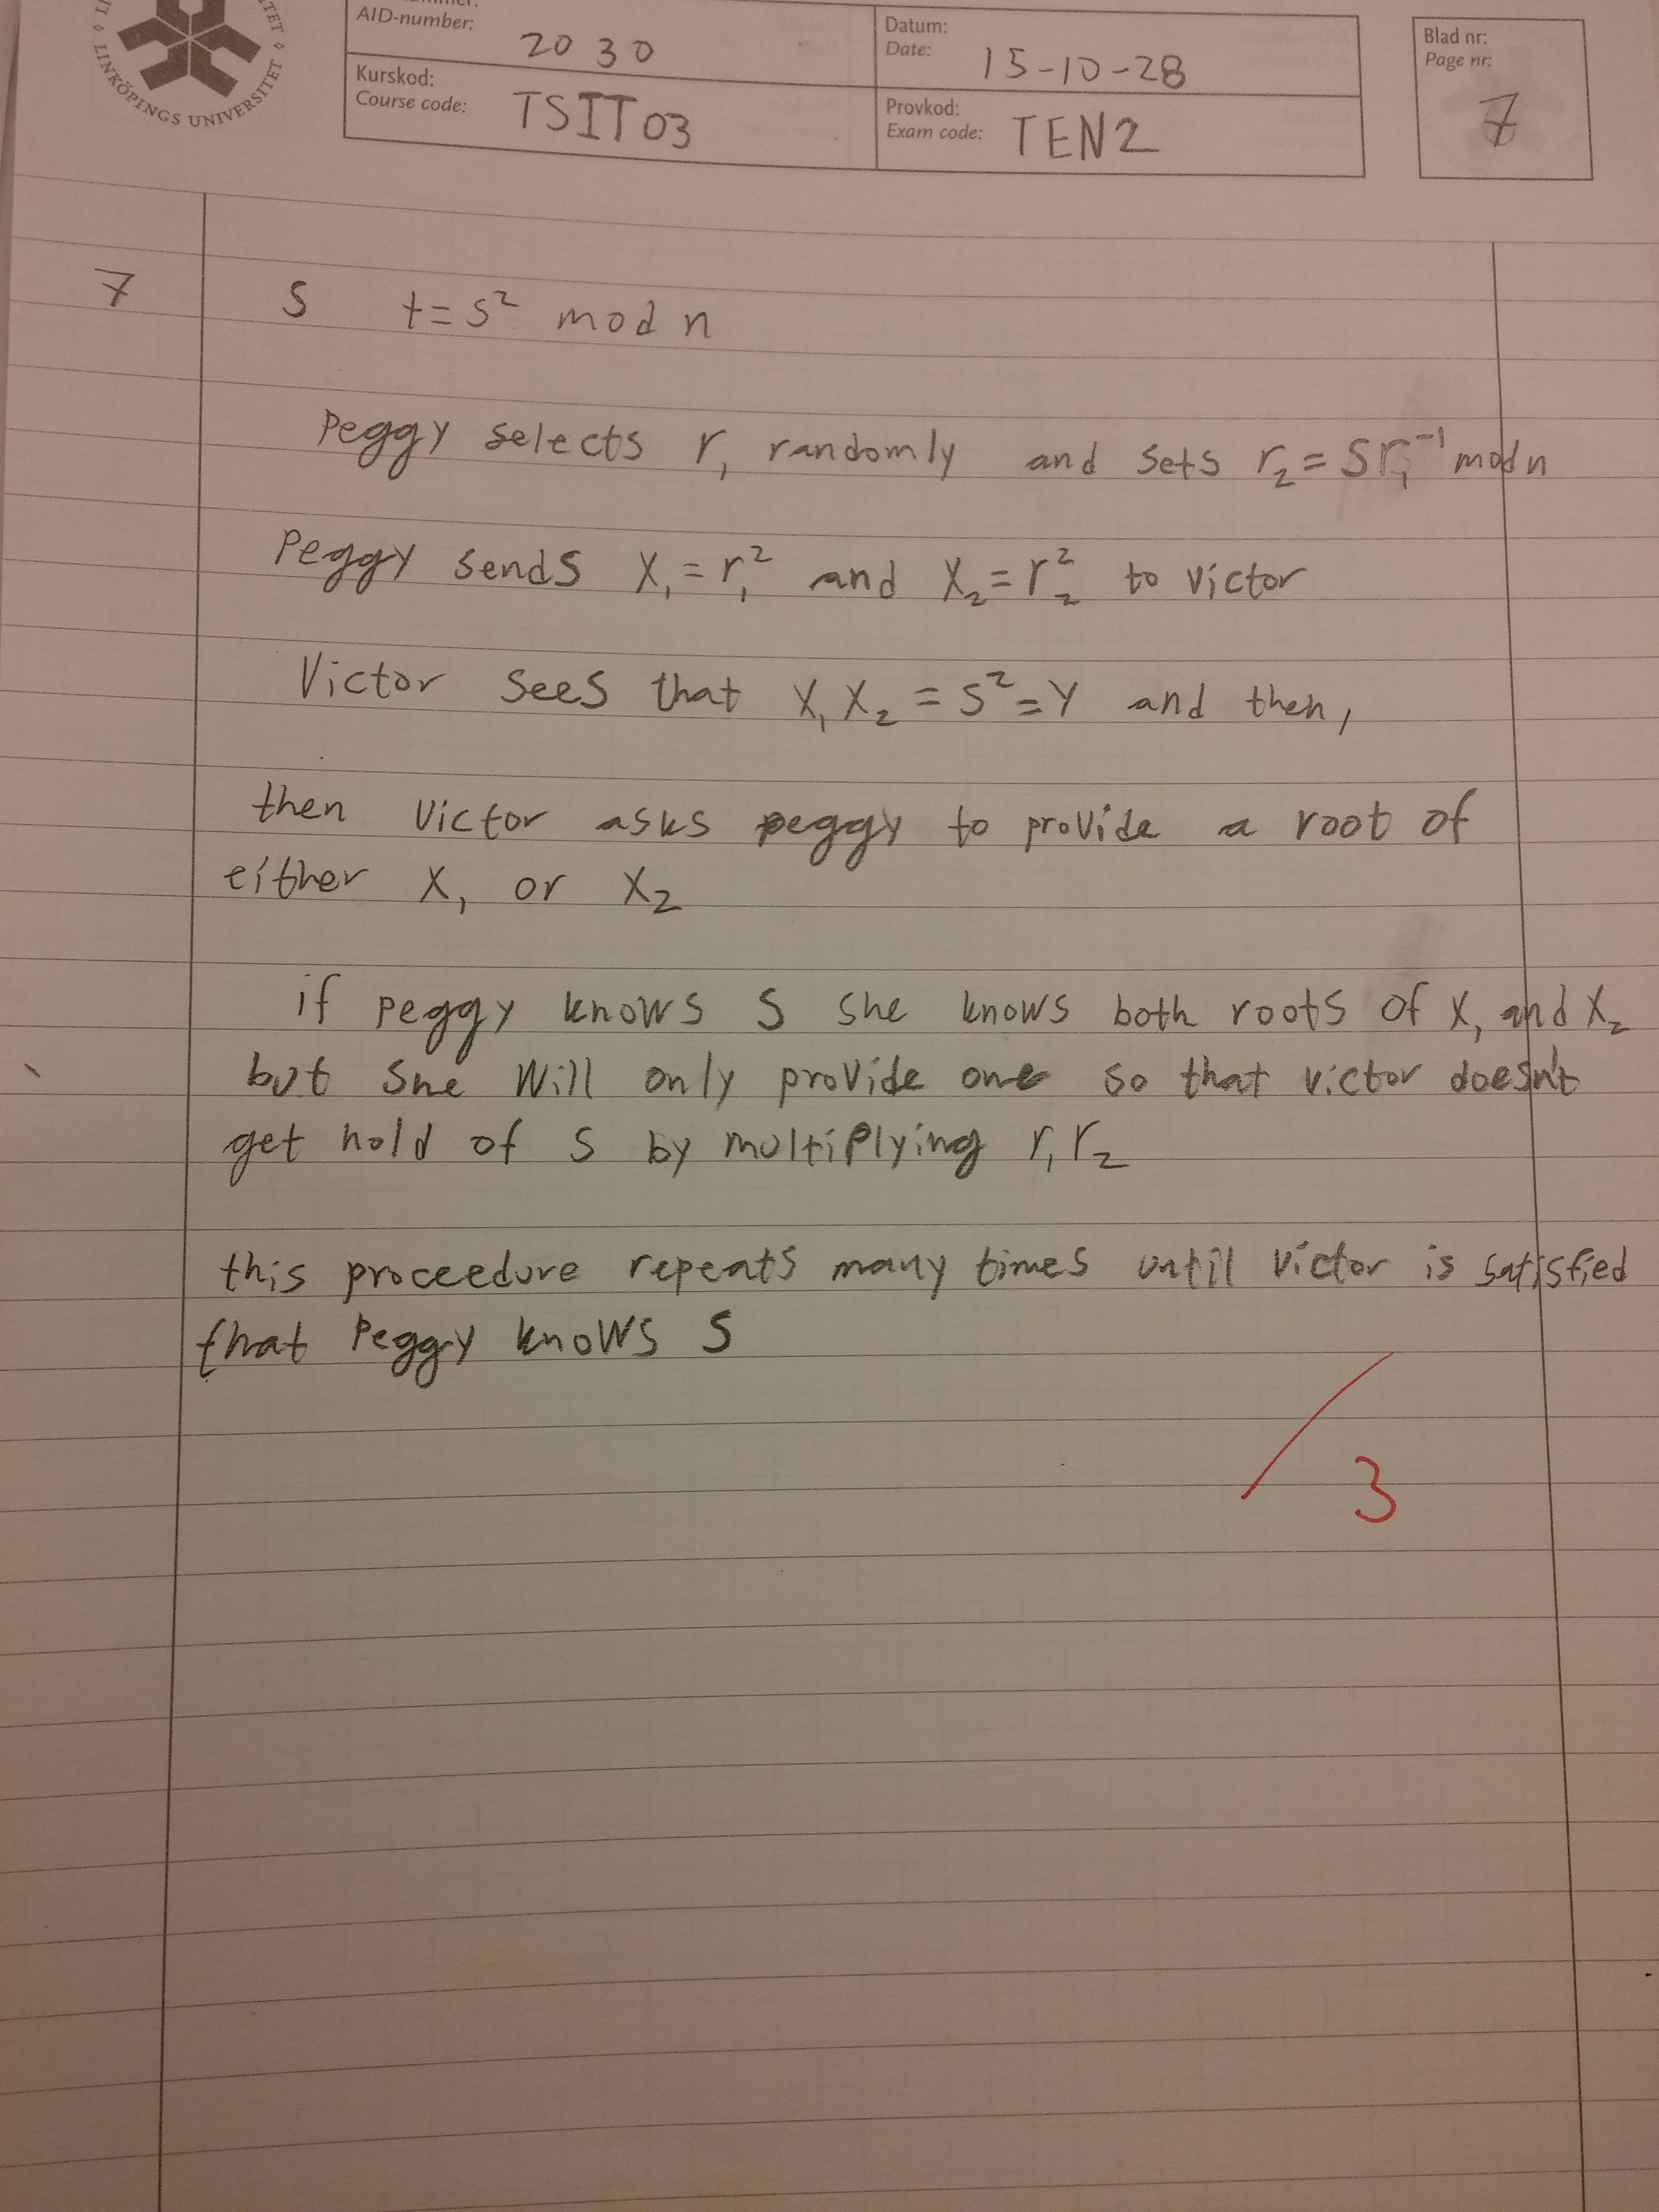 LINKÖPINGS UNIVERSITET
AID-number: 20 30
Datum:
Date: 15-10-28
Blad nr:
Page nr:
7
Kurskod:
Course code: TSIT03
Provkod:
Exam code: TEN2
7 S t=s² mod n
Peggy selects r₁ randomly and sets r₂ = Sr₁⁻¹ mod n
Peggy sends X₁ = r₁² and X₂ = r₂² to victor
Victor sees that X₁ X₂ = S² = Y and then,
then victor asks peggy to provide a root of
either X₁ or X₂
if peggy knows S she knows both roots of X₁ and X₂
but she will only provide one so that victor doesn't
get hold of S by multiplying r₁ r₂
this proceedure repeats many times until victor is satisfied
that Peggy knows S
/ 3